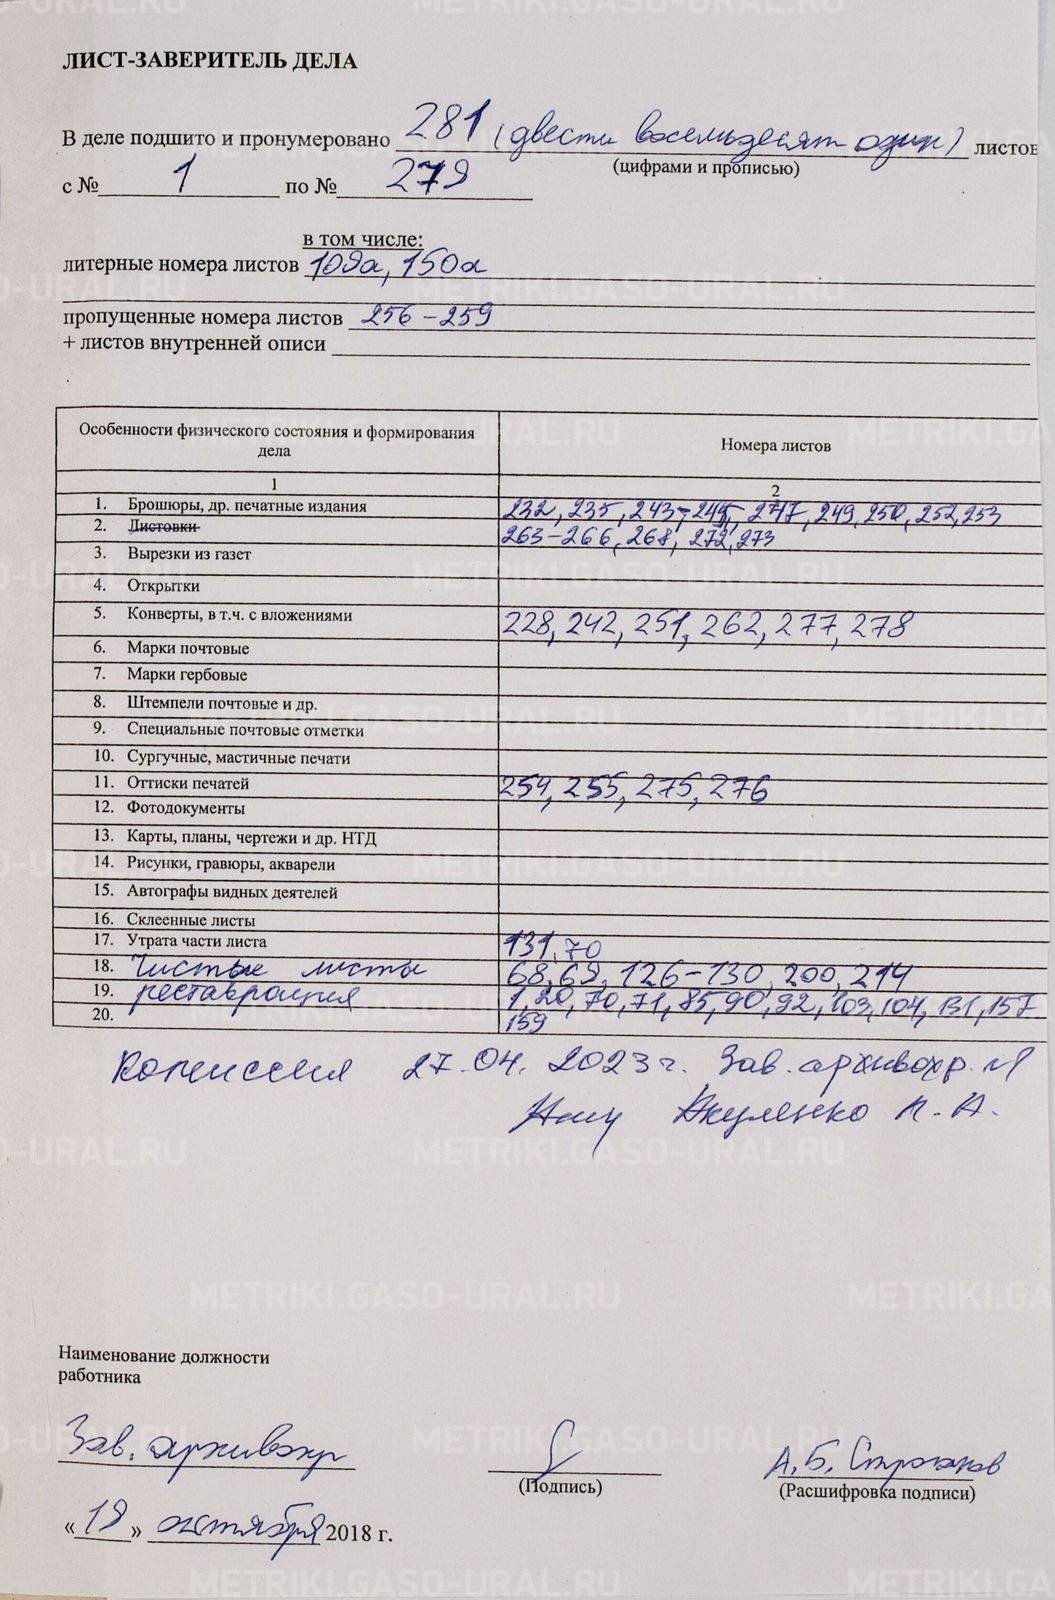 ЛИСТ-ЗАВЕРИТЕЛЬ ДЕЛА
В деле подшито и пронумеровано 281 (двести восемьдесят один) листов
(цифрами и прописью)
с № 1 по № 279
в том числе:
литерные номера листов 109а, 150а
пропущенные номера листов 256-259
+ листов внутренней описи
Особенности физического состояния и формирования дела Номера листов
1 2
1. Брошюры, др. печатные издания 232, 235, 243-245, 247, 249, 250, 252, 253
2. Листовки 263-266, 268, 272, 273
3. Вырезки из газет
4. Открытки
5. Конверты, в т.ч. с вложениями 228, 242, 251, 262, 277, 278
6. Марки почтовые
7. Марки гербовые
8. Штемпели почтовые и др.
9. Специальные почтовые отметки
10. Сургучные, мастичные печати
11. Оттиски печатей 254, 255, 275, 276
12. Фотодокументы
13. Карты, планы, чертежи и др. НТД
14. Рисунки, гравюры, акварели
15. Автографы видных деятелей
16. Склеенные листы
17. Утрата части листа 131, 70
18. Чистые листы 68, 69, 126-130, 200, 214
19. реставрация 1, 20, 70, 71, 85, 90, 92, 103, 104, 131, 157
20. 159
Комиссия 27.04.2023г. Зав. архивохр.
Акуленко
Наименование должности
работника
Зав. архивохр
(Подпись)
А.Б. Строганов
(Расшифровка подписи)
«19» октября 2018 г.
METRIKI.GASO-URAL.RU